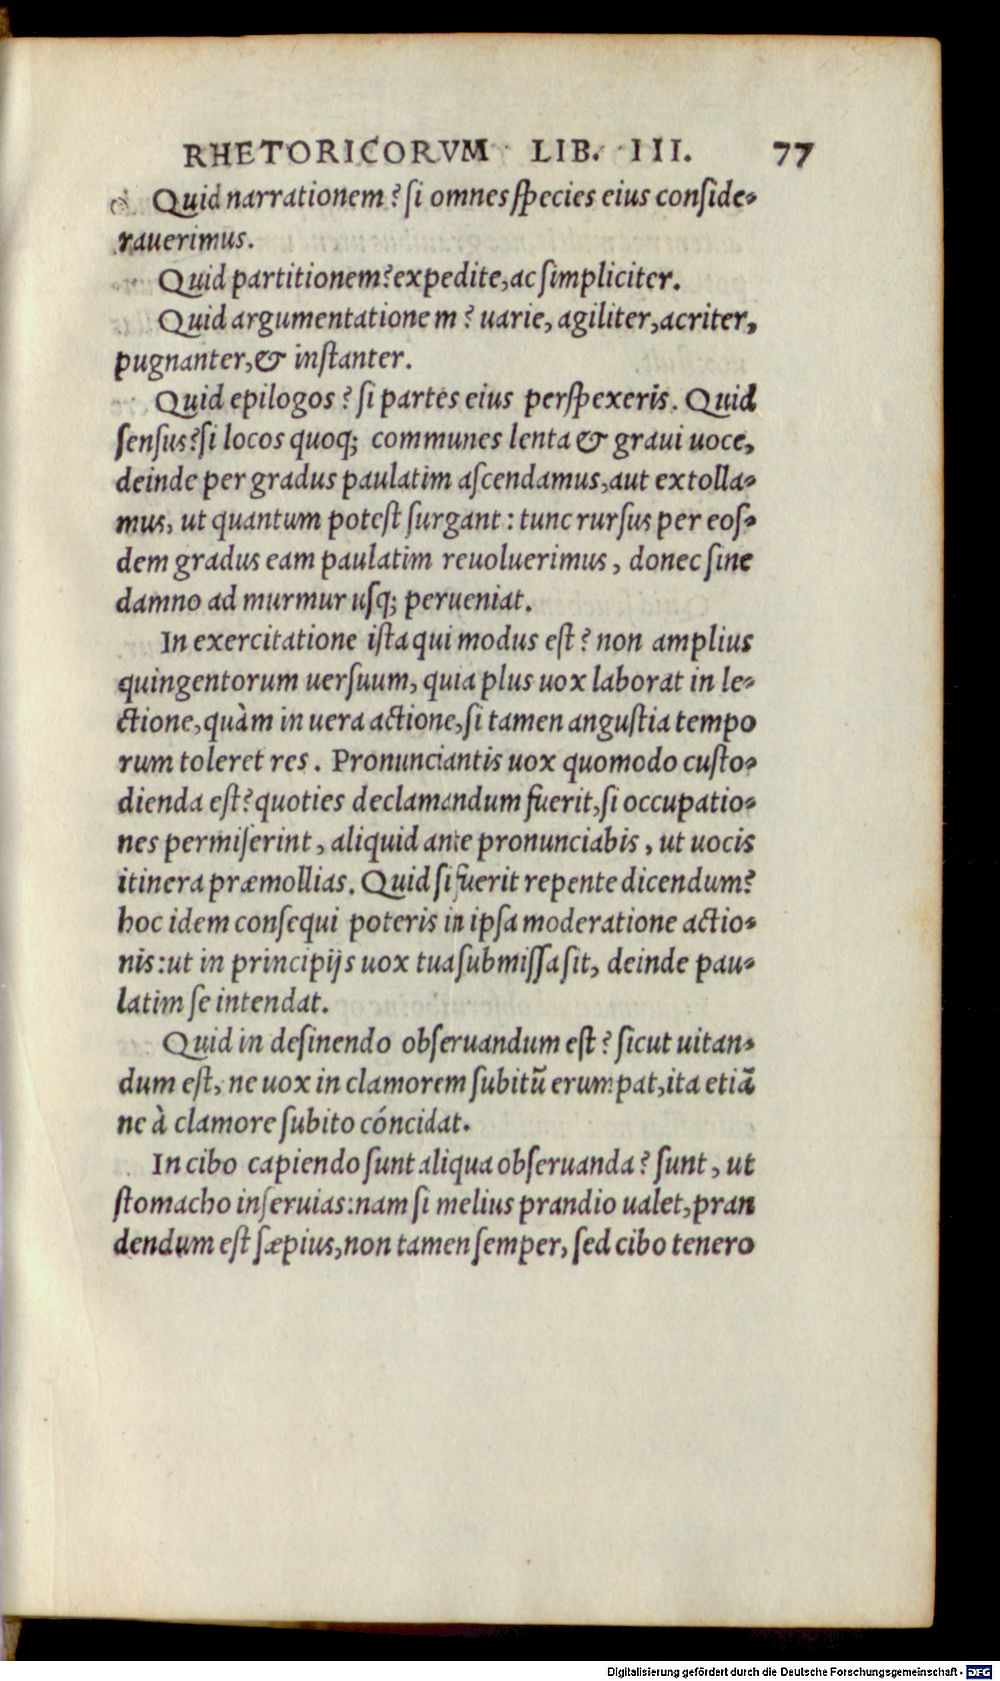 RHETORICORVM LIB. III. 77
Quid narrationem? si omnes species eius conside-
rauerimus.
Quid partitionem? expedite, ac simpliciter.
Quid argumentationem? uarie, agiliter, acriter,
pugnanter, & instanter.
Quid epilogos? si partes eius perspexeris. Quid
sensus? si locos quoq; communes lenta & graui uoce,
deinde per gradus paulatim ascendamus, aut extolla-
mus, ut quantum potest surgant: tunc rursus per eos-
dem gradus eam paulatim reuoluerimus, donec sine
damno ad murmur usq; perueniat.
In exercitatione ista qui modus est? non amplius
quingentorum uersuum, quia plus uox laborat in le-
ctione, quàm in uera actione, si tamen angustia tempo
rum toleret res. Pronunciantis uox quomodo custo-
dienda est? quoties declamandum fuerit, si occupatio-
nes permiserint, aliquid ante pronunciabis, ut uocis
itinera præmollias. Quid si fuerit repente dicendum?
hoc idem consequi poteris in ipsa moderatione actio-
nis: ut in principijs uox tua submissa sit, deinde pau-
latim se intendat.
Quid in desinendo obseruandum est? sicut uitan-
dum est, ne uox in clamorem subitũ erumpat, ita etiã
ne à clamore subito cóncidat.
In cibo capiendo sunt aliqua obseruanda? sunt, ut
stomacho inseruias: nam si melius prandio ualet, pran
dendum est sæpius, non tamen semper, sed cibo tenero
Digitalisierung gefördert durch die Deutsche Forschungsgemeinschaft - DFG